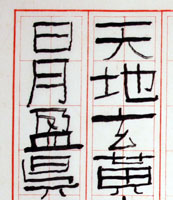 天地玄黄
日月盈昃